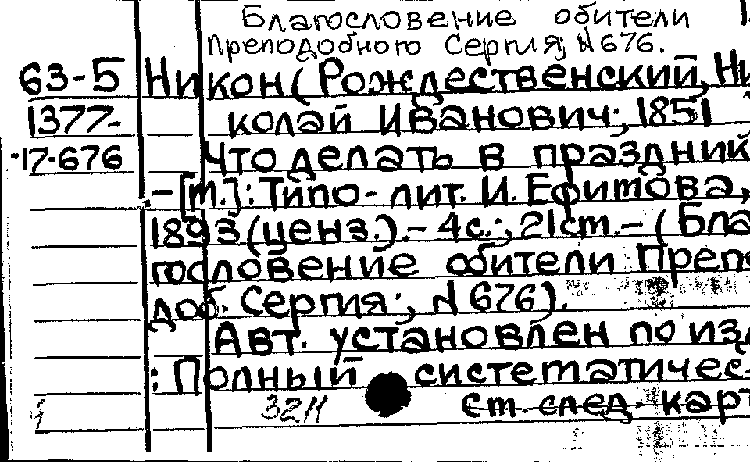 Благословение обители
Преподобного Сергия; № 676.
63-5 Никон (Рождественский, Ни
1377- колай Иванович; 1851
17-676 Что делать в праздник
.-[М.]: Типо-лит. И. Ефимова,
1893 (ценз.).- 4с.; 21см.- (Бла
гословение обители Препо
доб. Сергия:; № 676).
Авт. установлен по изд
: Полный систематичес-
3211 см. след. карт